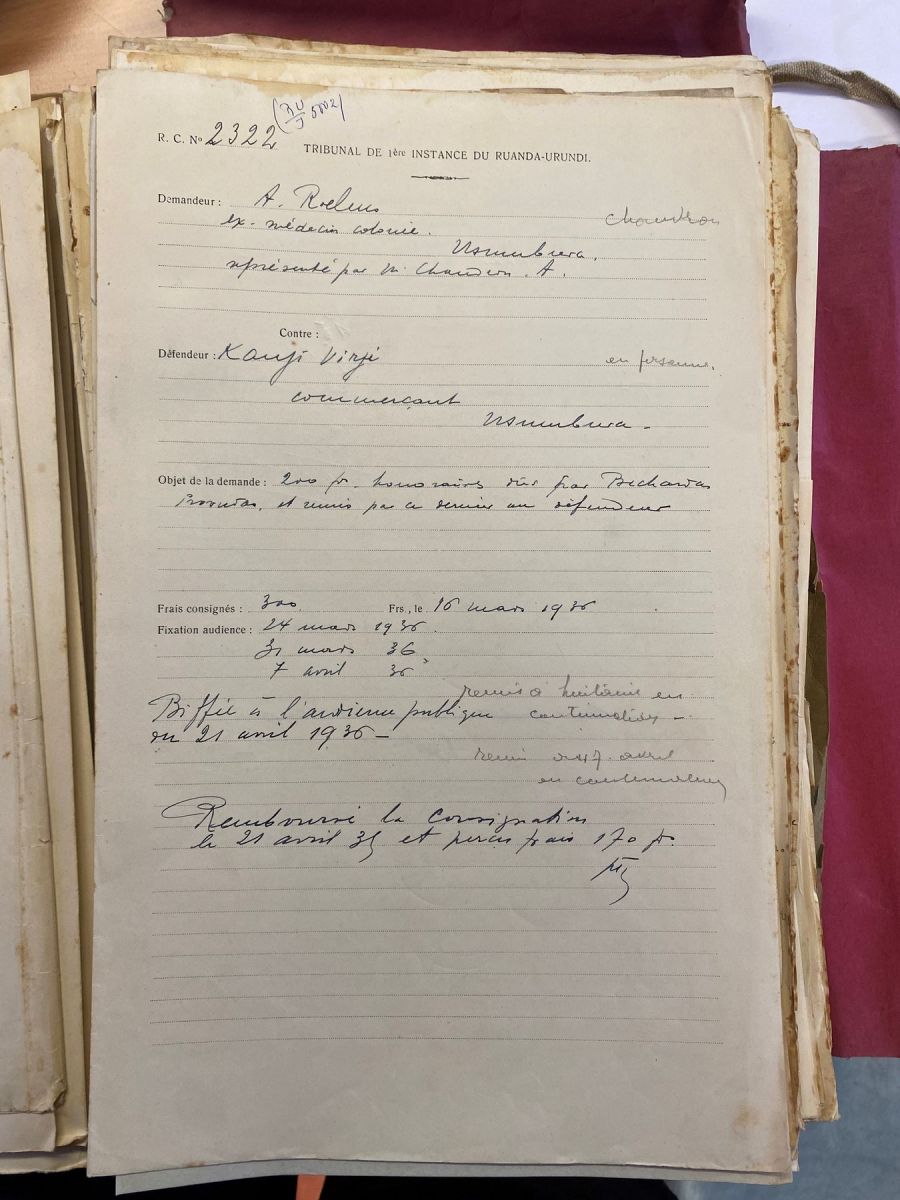 (RU/J 5002)
R. C. Nº 2322
TRIBUNAL DE 1ère INSTANCE DU RUANDA-URUNDI.
Demandeur : A. Roelens
ex-médecin colonie.
Usumbura.
représenté par M. Chaudron. A.
Chaudron
Contre :
Défendeur : Kanji Virji
en personne.
commerçant
Usumbura -
Objet de la demande : 200 fr. honoraires dûs par
et remis par ce dernier au défendeur
Frais consignés : 300 Frs, le 16 mars 1936
Fixation audience : 24 mars 1936.
31 mars 36
7 avril 36
remis à huitaine en
continuation -
Biffée à l'audience publique
du 21 avril 1936 -
remis avril
en continuation
Remboursé la consignation
le 21 avril 36 et perçu frais 170 fr.